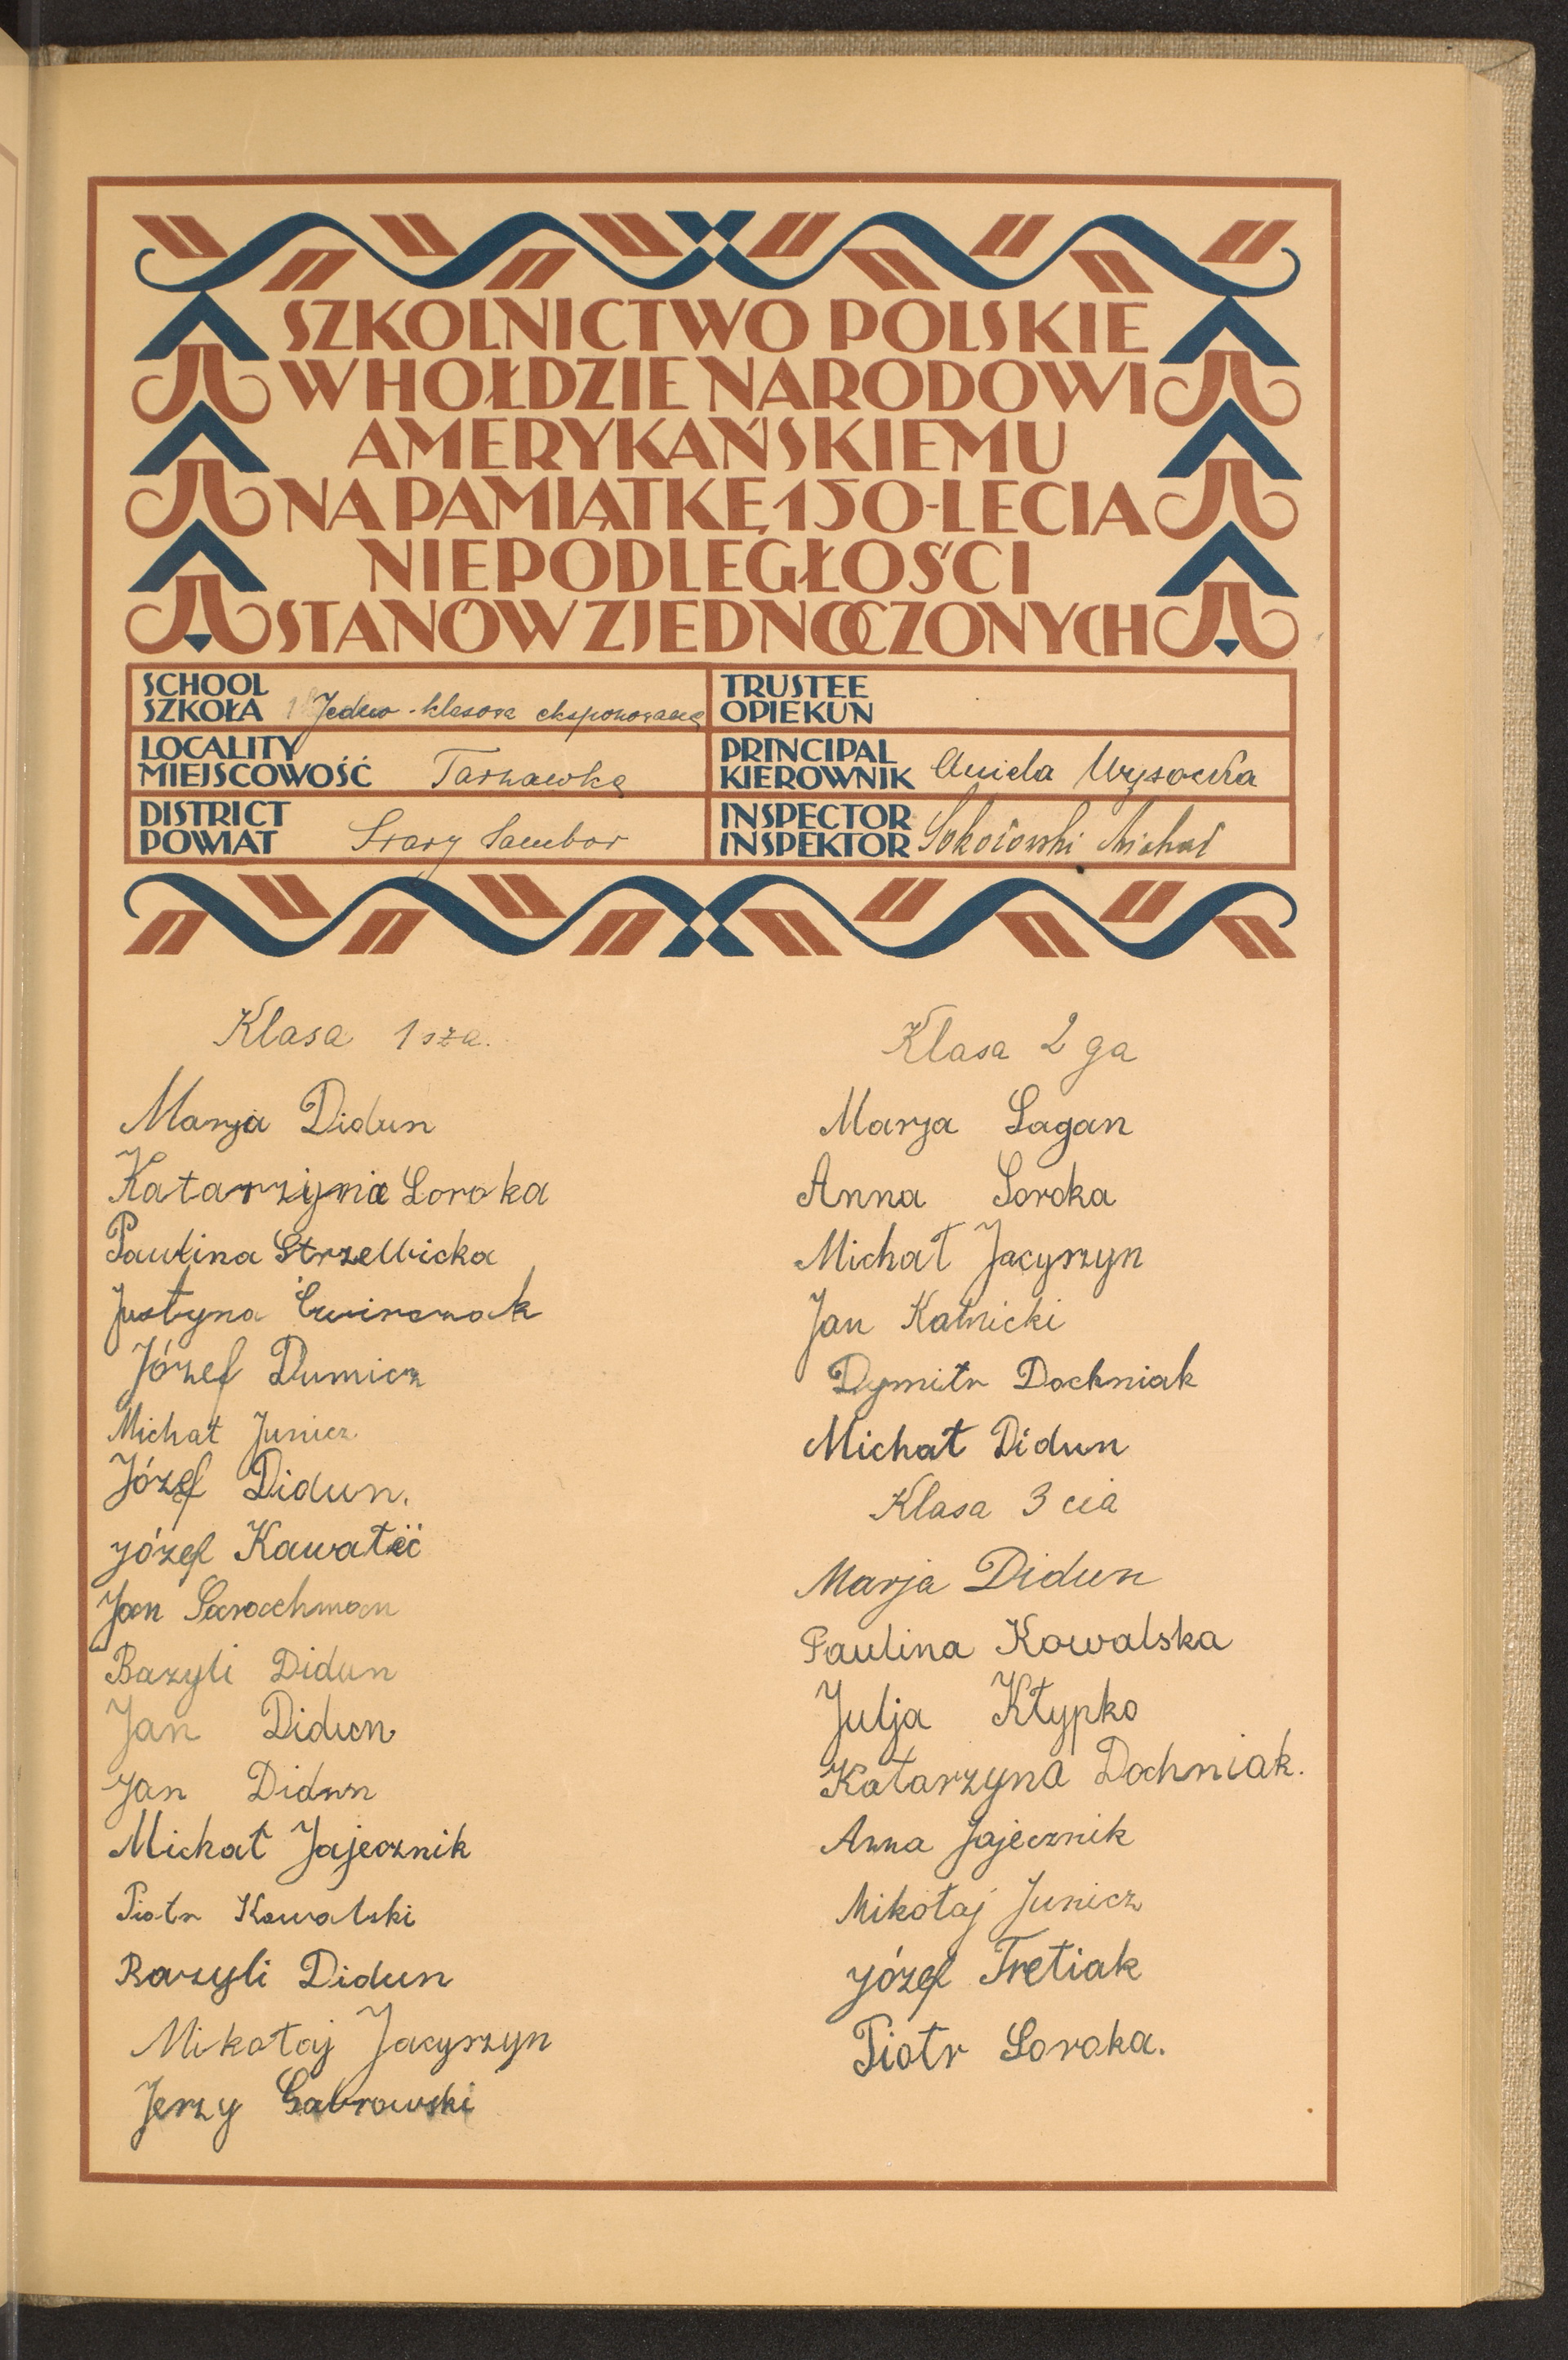 SZKOLNICTWO POLSKIE
W HOŁDZIE NARODOWI
AMERYKAŃSKIEMU
NA PAMIĄTKĘ 150-LECIA
NIEPODLEGŁOŚCI
STANÓW ZJEDNOCZONYCH
SCHOOL
SZKOŁA Jedno-klasowa eksponowana
LOCALITY
MIEJSCOWOŚĆ Tarnawka
DISTRICT
POWIAT Stary Sambor
TRUSTEE
OPIEKUN
PRINCIPAL
KIEROWNIK Aniela Wysocka
INSPECTOR
INSPEKTOR Sokołowski Michał
Klasa 1sza.
Marja Didun
Katarzyna Soroka
Paulina Strzelbicka
Justyna
Józef Dumicz
Michał Junicz
Józef Didun.
Józef
Jan Sarachman
Bazyli Didun
Jan Didun
Jan Didun
Michał Jajecznik
Piotr Kowalski
Bazyli Didun
Mikołaj Jacyszyn
Jerzy Gabrowski
Klasa 2ga
Marja Sagan
Anna Soroka
Michał Jacyszyn
Jan Kalnicki
Dymitr Dochniak
Michał Didun
Klasa 3cia
Marja Didun
Paulina Kowalska
Julja Kłypko
Katarzyna Dochniak.
Anna Jajecznik
Mikołaj Junicz
Józef Tretiak
Piotr Soroka.